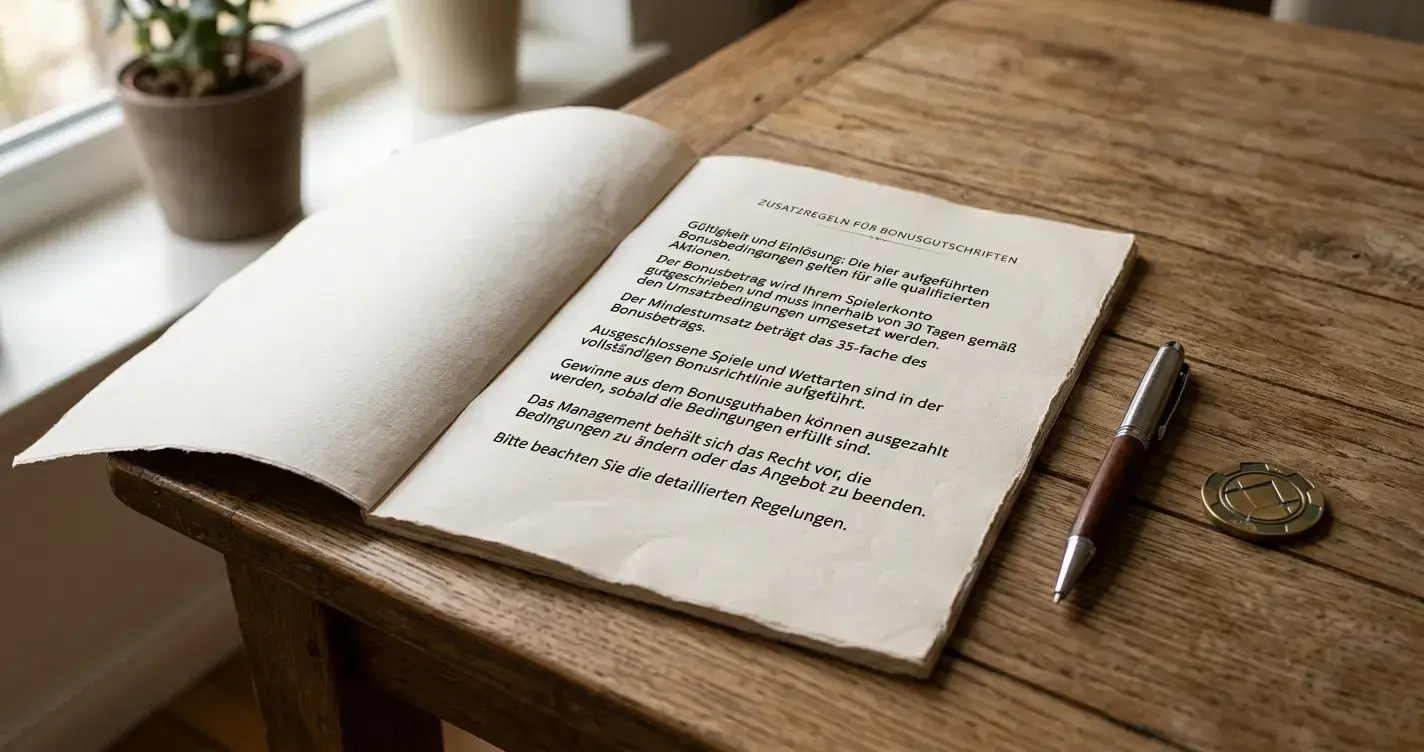 ZUSATZREGELN FÜR BONUSGUTSCHRIFTEN
Gültigkeit und Einlösung: Die hier aufgeführten
Bonusbedingungen gelten für alle qualifizierten
Aktionen.
Der Bonusbetrag wird Ihrem Spielerkonto
gutgeschrieben und muss innerhalb von 30 Tagen gemäß
den Umsatzbedingungen umgesetzt werden.
Der Mindestumsatz beträgt das 35-fache des
Bonusbetrags.
Ausgeschlossene Spiele und Wettarten sind in der
vollständigen Bonusrichtlinie aufgeführt.
Gewinne aus dem Bonusguthaben können ausgezahlt
werden, sobald die Bedingungen erfüllt sind.
Das Management behält sich das Recht vor, die
Bedingungen zu ändern oder das Angebot zu beenden.
Bitte beachten Sie die detaillierten Regelungen.